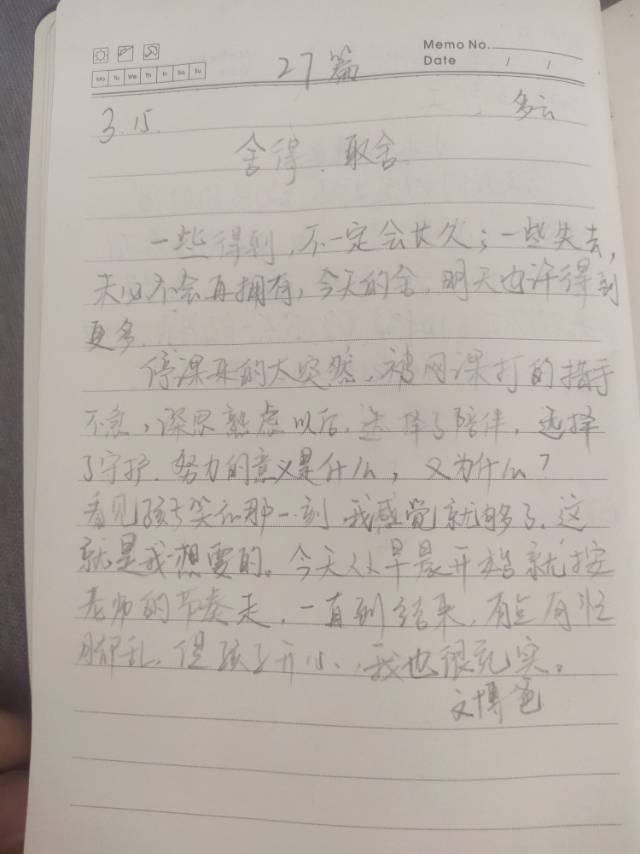 Memo No.
Date / /
Mo Tu We Th Fr Sa Su
27篇
3.15. 多云
舍得.取舍
一些得到,不一定会长久;一些失去,
未必不会再拥有,今天的舍,明天也许得到
更多
停课来的太突然,被网课打的措手
不急,深思熟虑以后,选择了陪伴,选择
了守护.努力的意义是什么,又为什么?
看见孩子笑的那一刻我感觉就够了.这
就是我想要的。今天从早晨开始就按
老师的节奏走,一直到结束,有点有忙
脚乱,但孩子开心,我也很充实。
文博爸